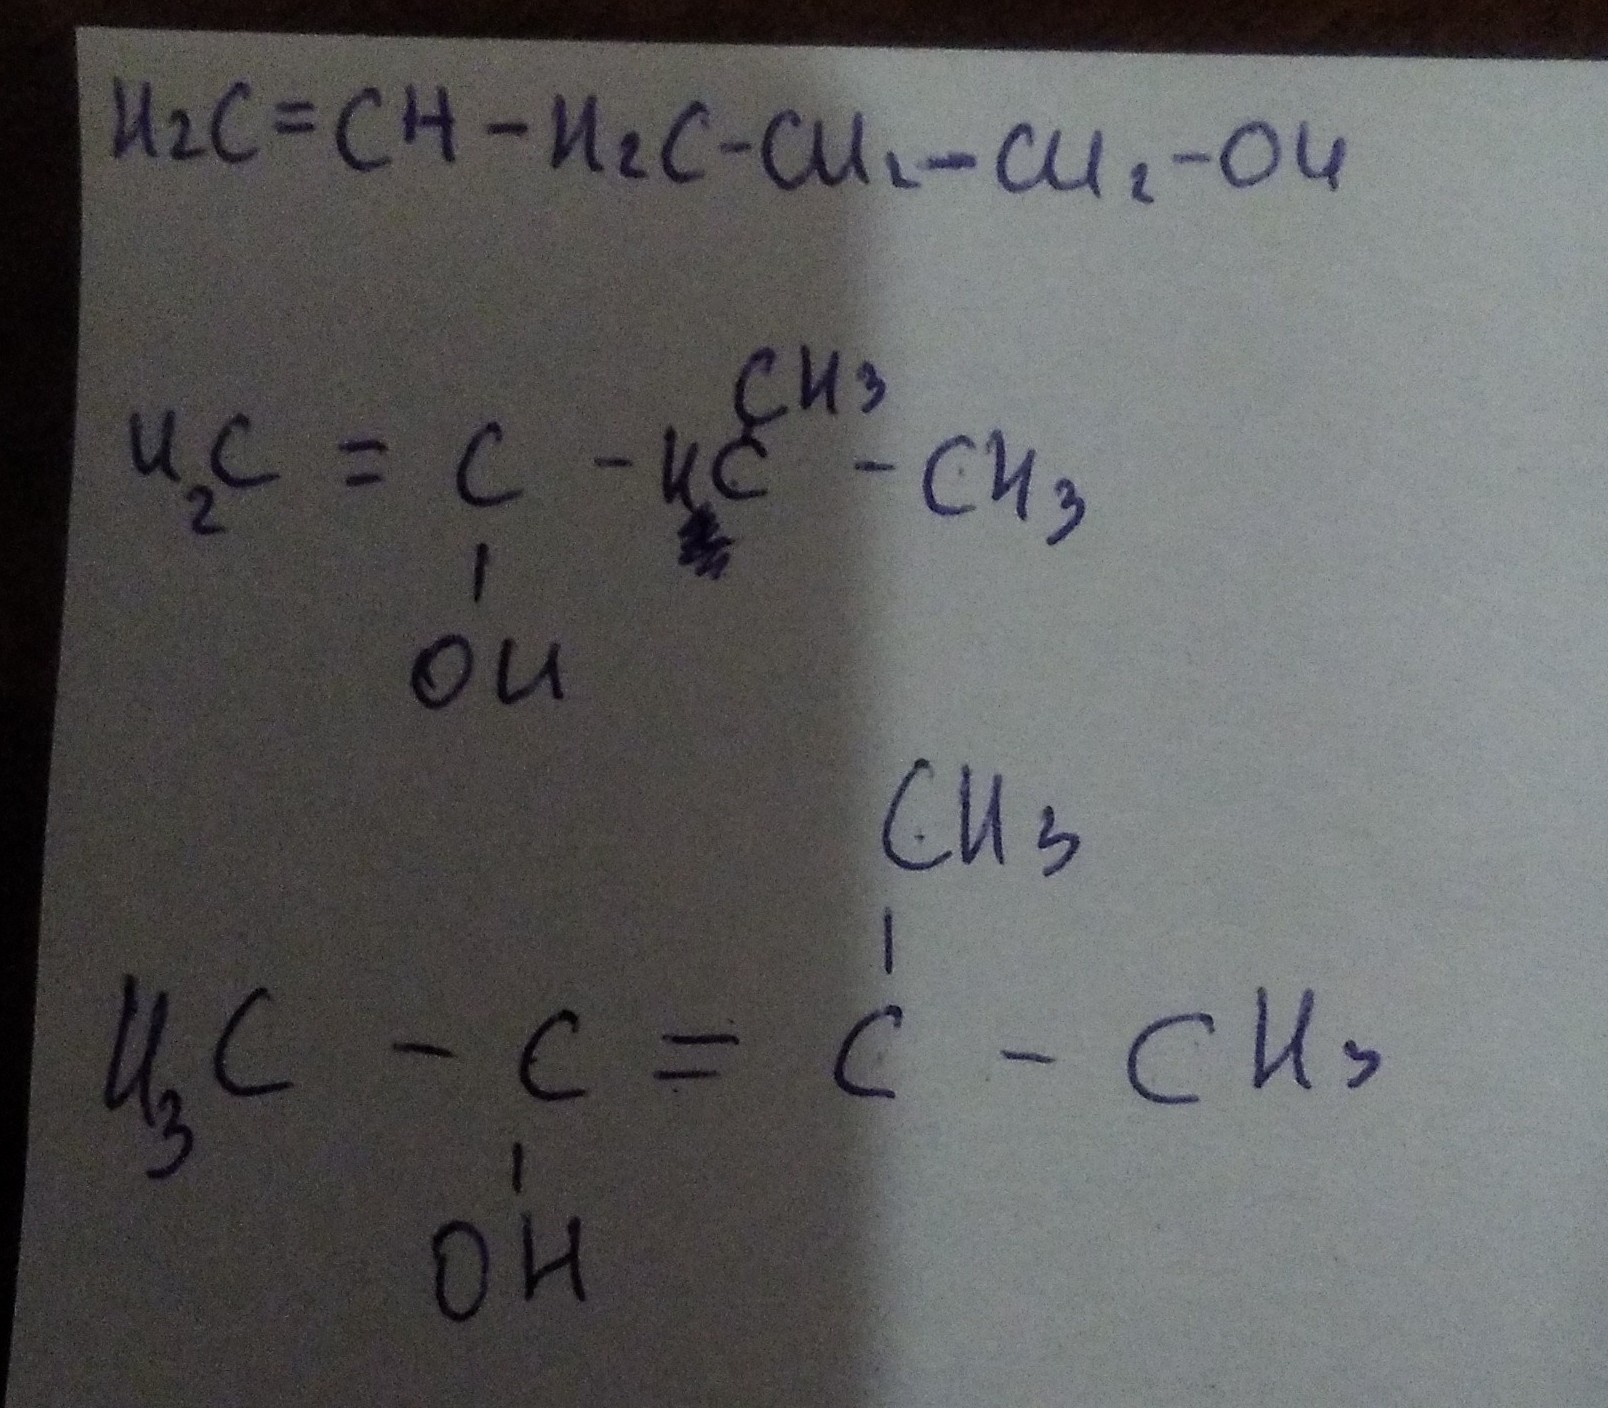 H2C=CH-H2C-CH2-CH2-OH
CH3
H2C = C - HC - CH3
OH
CH3
H3C - C = C - CH3
OH